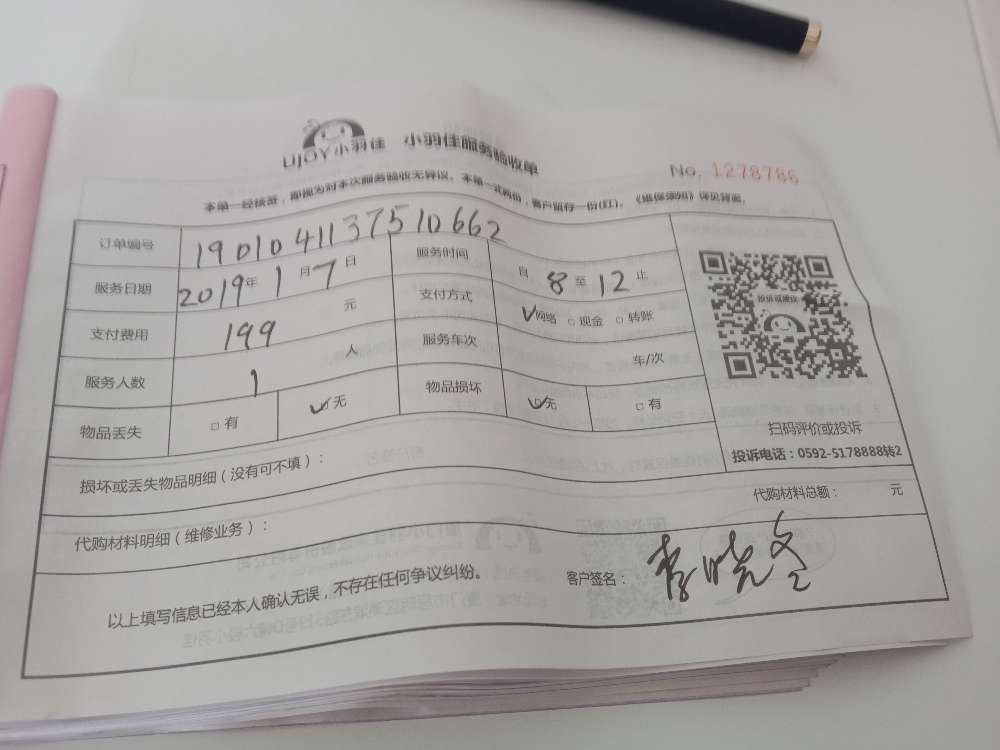 UJOY小羽佳 小羽佳服务验收单
No. 1278786
本单一经核签，即视为对本次服务验收无异议。本单一式两份，客户留存一份(红)。《维保须知》详见背面。
订单编号 1901041137510662
服务日期 2019年1月7日 服务时间 自8至12止
支付费用 199 元 支付方式 网络 □现金 □转账
服务人数 1 人 服务车次 车/次
物品丢失 □有 □无 物品损坏 □无 □有
投诉或建议
扫码评价或投诉
投诉电话：0592-5178888转2
损坏或丢失物品明细（没有可不填）：
代购材料明细（维修业务）： 代购材料总额： 元
以上填写信息已经本人确认无误，不存在任何争议纠纷。 客户签名：李晓文